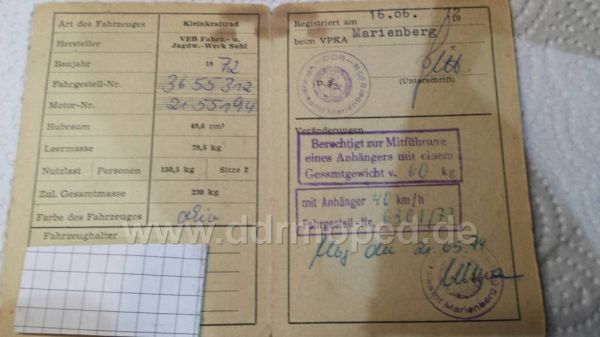 Art des Fahrzeuges Kleinkraftrad
Hersteller VEB Fahrz.- u. Jagdw.-Werk Suhl
Baujahr 1972
Fahrgestell-Nr. 3655312
Motor-Nr. 2155194
Hubraum 49,6 cm³
Leermasse 79,5 kg
Nutzlast Personen 150,5 kg Sitze 2
Zul. Gesamtmasse 230 kg
Farbe des Fahrzeuges
Fahrzeughalter
Registriert am 16.06. 19
beim VPKA Marienberg
(Unterschrift)
Veränderungen
Berechtigt zur Mitführung
eines Anhängers mit einem
Gesamtgewicht v. 60 kg
mit Anhänger 40 km/h
Fahrgestell-Nr.
Mbg. den 21.05.74
Marienberg
www.ddrmoped.de